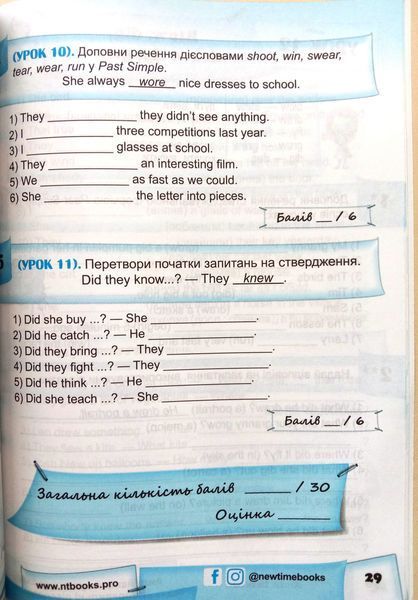 (УРОК 10). Доповни речення дієсловами shoot, win, swear,
tear, wear, run у Past Simple.
She always wore nice dresses to school.
1) They ____________ they didn't see anything.
2) I ____________ three competitions last year.
3) I ____________ glasses at school.
4) They ____________ an interesting film.
5) We ____________ as fast as we could.
6) She ____________ the letter into pieces.
Балів __ / 6
(УРОК 11). Перетвори початки запитань на ствердження.
Did they know...? — They knew.
1) Did she buy ...? — She ____________.
2) Did he catch ...? — He ____________.
3) Did they bring ...? — They ____________.
4) Did they fight ...? — They ____________.
5) Did he think ...? — He ____________.
6) Did she teach ...? — She ____________.
Балів __ / 6
Загальна кількість балів _____ / 30
Оцінка ______
www.ntbooks.pro @newtimebooks 29